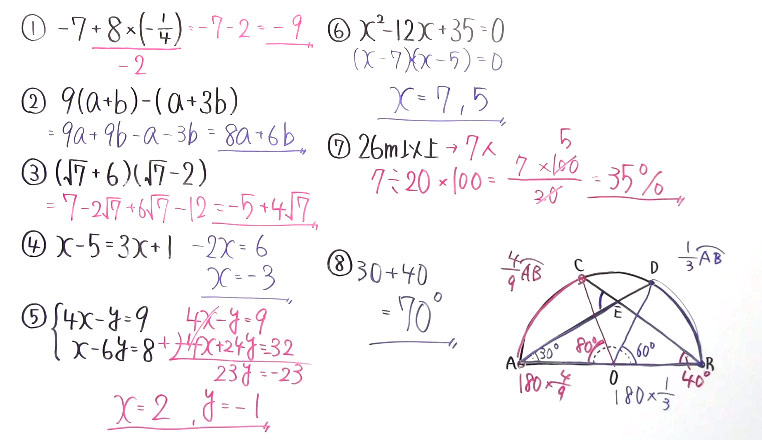 ① -7+8×(-1/4)=-7-2=-9
-2
② 9(a+b)-(a+3b)
=9a+9b-a-3b=8a+6b
③ (√7+6)(√7-2)
=7-2√7+6√7-12=-5+4√7
④ x-5=3x+1 -2x=6
x=-3
⑤ {4x-y=9 4x-y=9
x-6y=8 +)-4x+24y=-32
23y=-23
x=2, y=-1
⑥ x²-12x+35=0
(x-7)(x-5)=0
x=7,5
⑦ 26m以上→7人
5
7÷20×100= 7×100/20 =35%
⑧ 30+40
=70°
4/9 AB C D 1/3 AB
E
A 30° 80° 60° 40° B
O
180×4/9 180×1/3